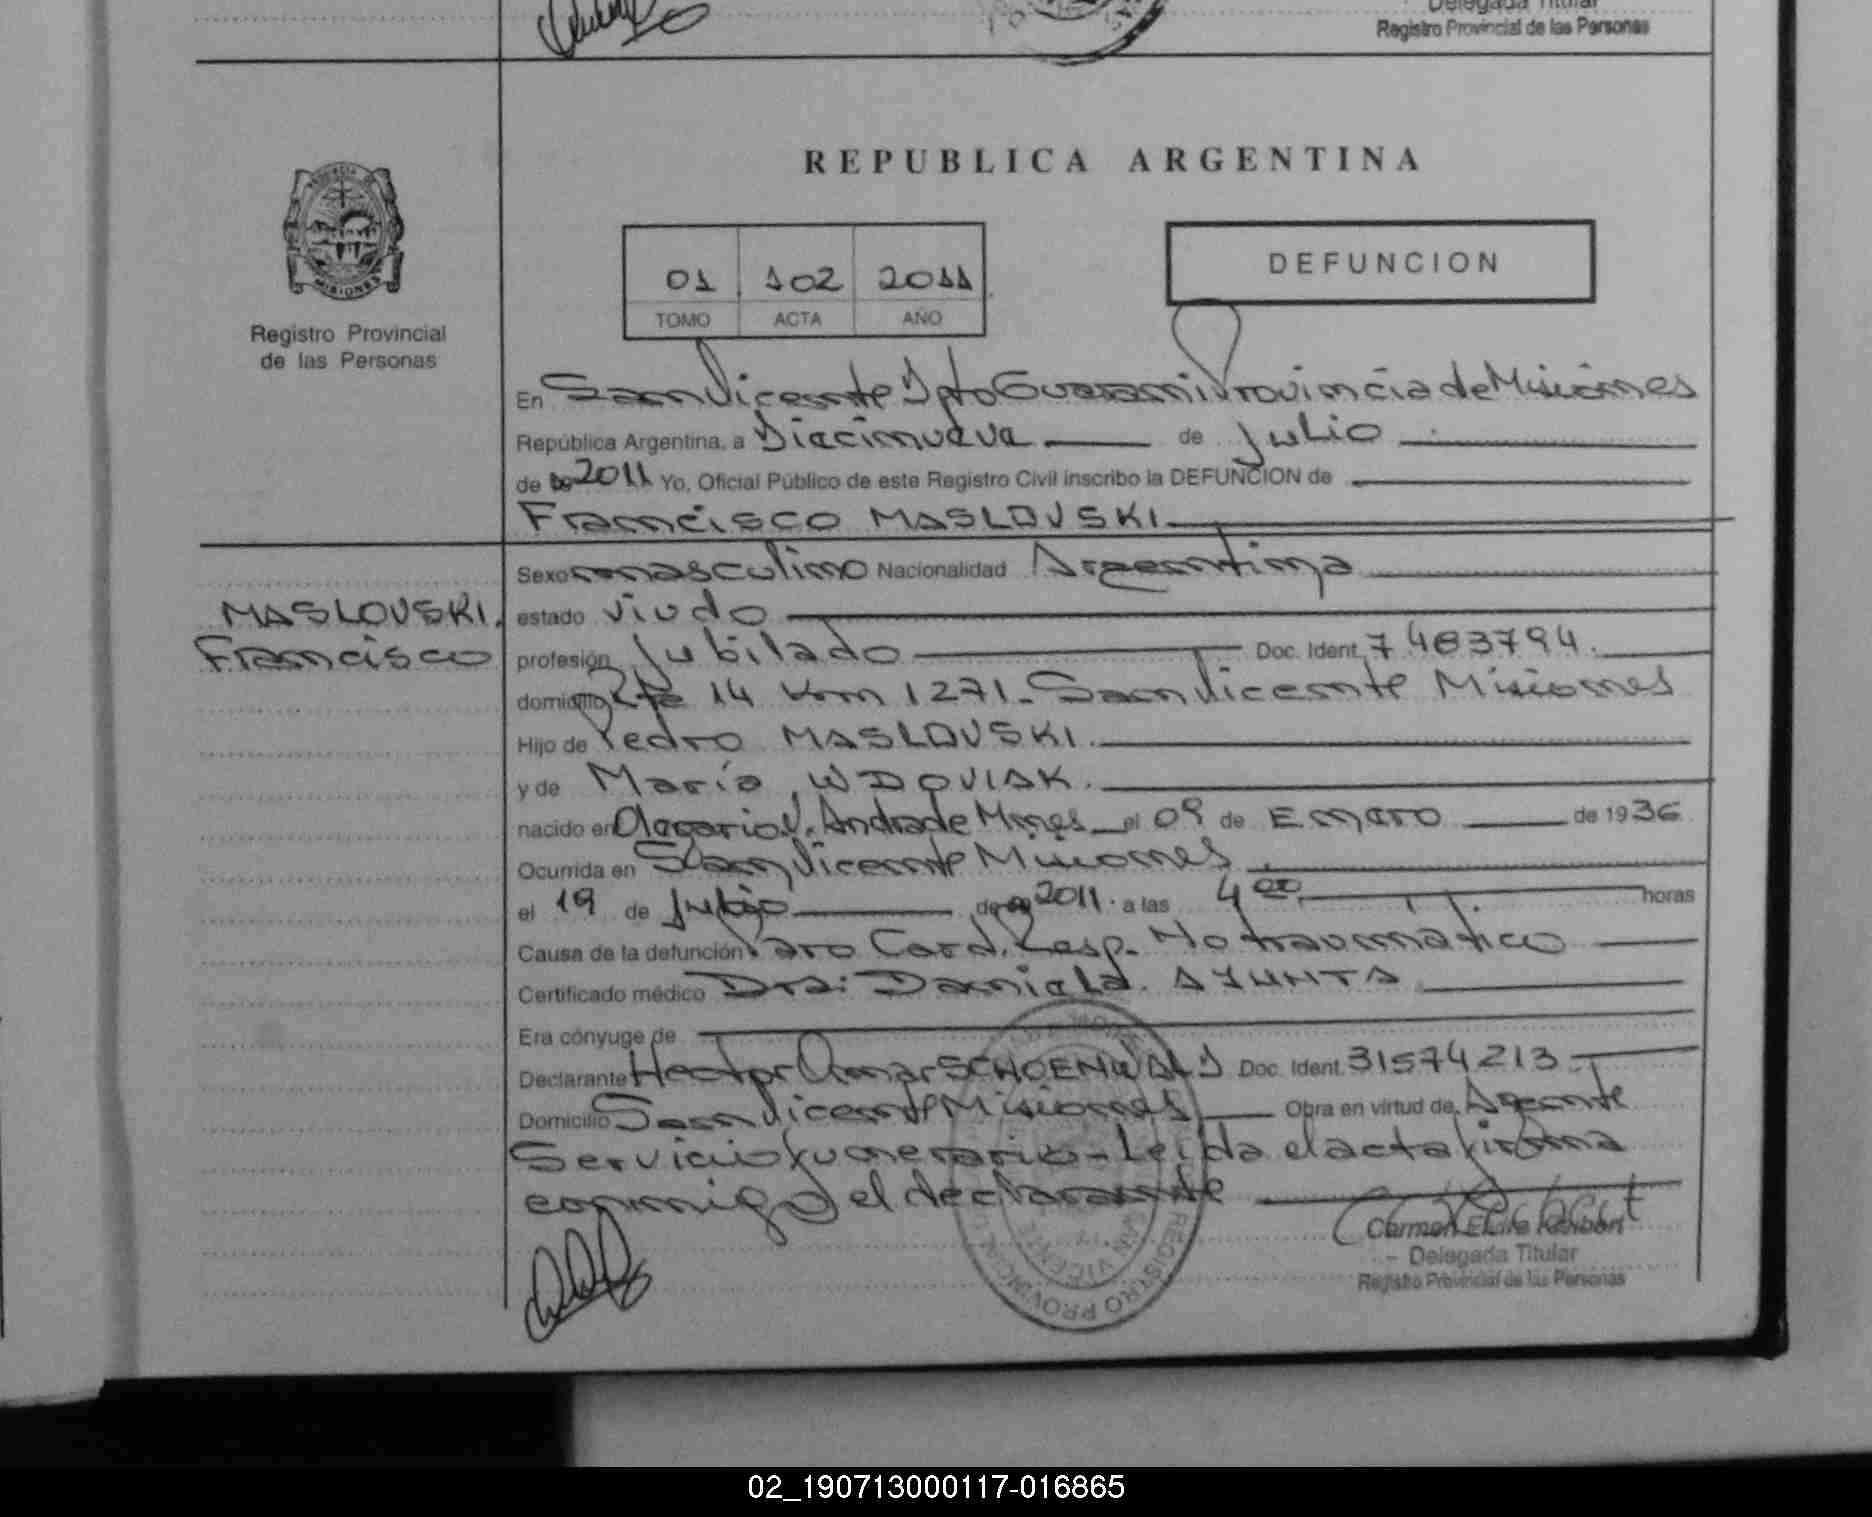 Delegada Titular
Registro Provincial de las Personas
REPUBLICA ARGENTINA
MISIONES
Registro Provincial
de las Personas
01 102 2011
TOMO ACTA AÑO
DEFUNCION
En San Vicente Dpto Guarani Provincia de Misiones
República Argentina, a Diecinueve de Julio
de 2011 Yo, Oficial Público de este Registro Civil inscribo la DEFUNCION de
Francisco MASLOVSKI
MASLOVSKI.
Francisco
Sexo masculino Nacionalidad Argentina
estado viudo
profesión Jubilado Doc. Ident. 7483794.
domicilio Rta 14 Km 1271- San Vicente Misiones
Hijo de Pedro MASLOVSKI.
y de María WDOVIAK.
nacido en Olegario V. Andrade Mnes el 09 de Enero de 1936
Ocurrida en San Vicente Misiones
el 19 de Julio de 2011. a las 4 00 horas
Causa de la defunción Paro Card. Resp. No traumático
Certificado médico Dra: Daniela
Era cónyuge de
Declarante Hector Omar SCHOENWALD Doc. Ident. 31574213
Domicilio San Vicente Misiones Obra en virtud de Agente
Servicio funerario - Leida el acta firma
conmigo el declarante
Carmen Elvira Reibert
Delegada Titular
Registro Provincial de las Personas
REGISTRO PROVINCIAL
SAN VICENTE
02_190713000117-016865